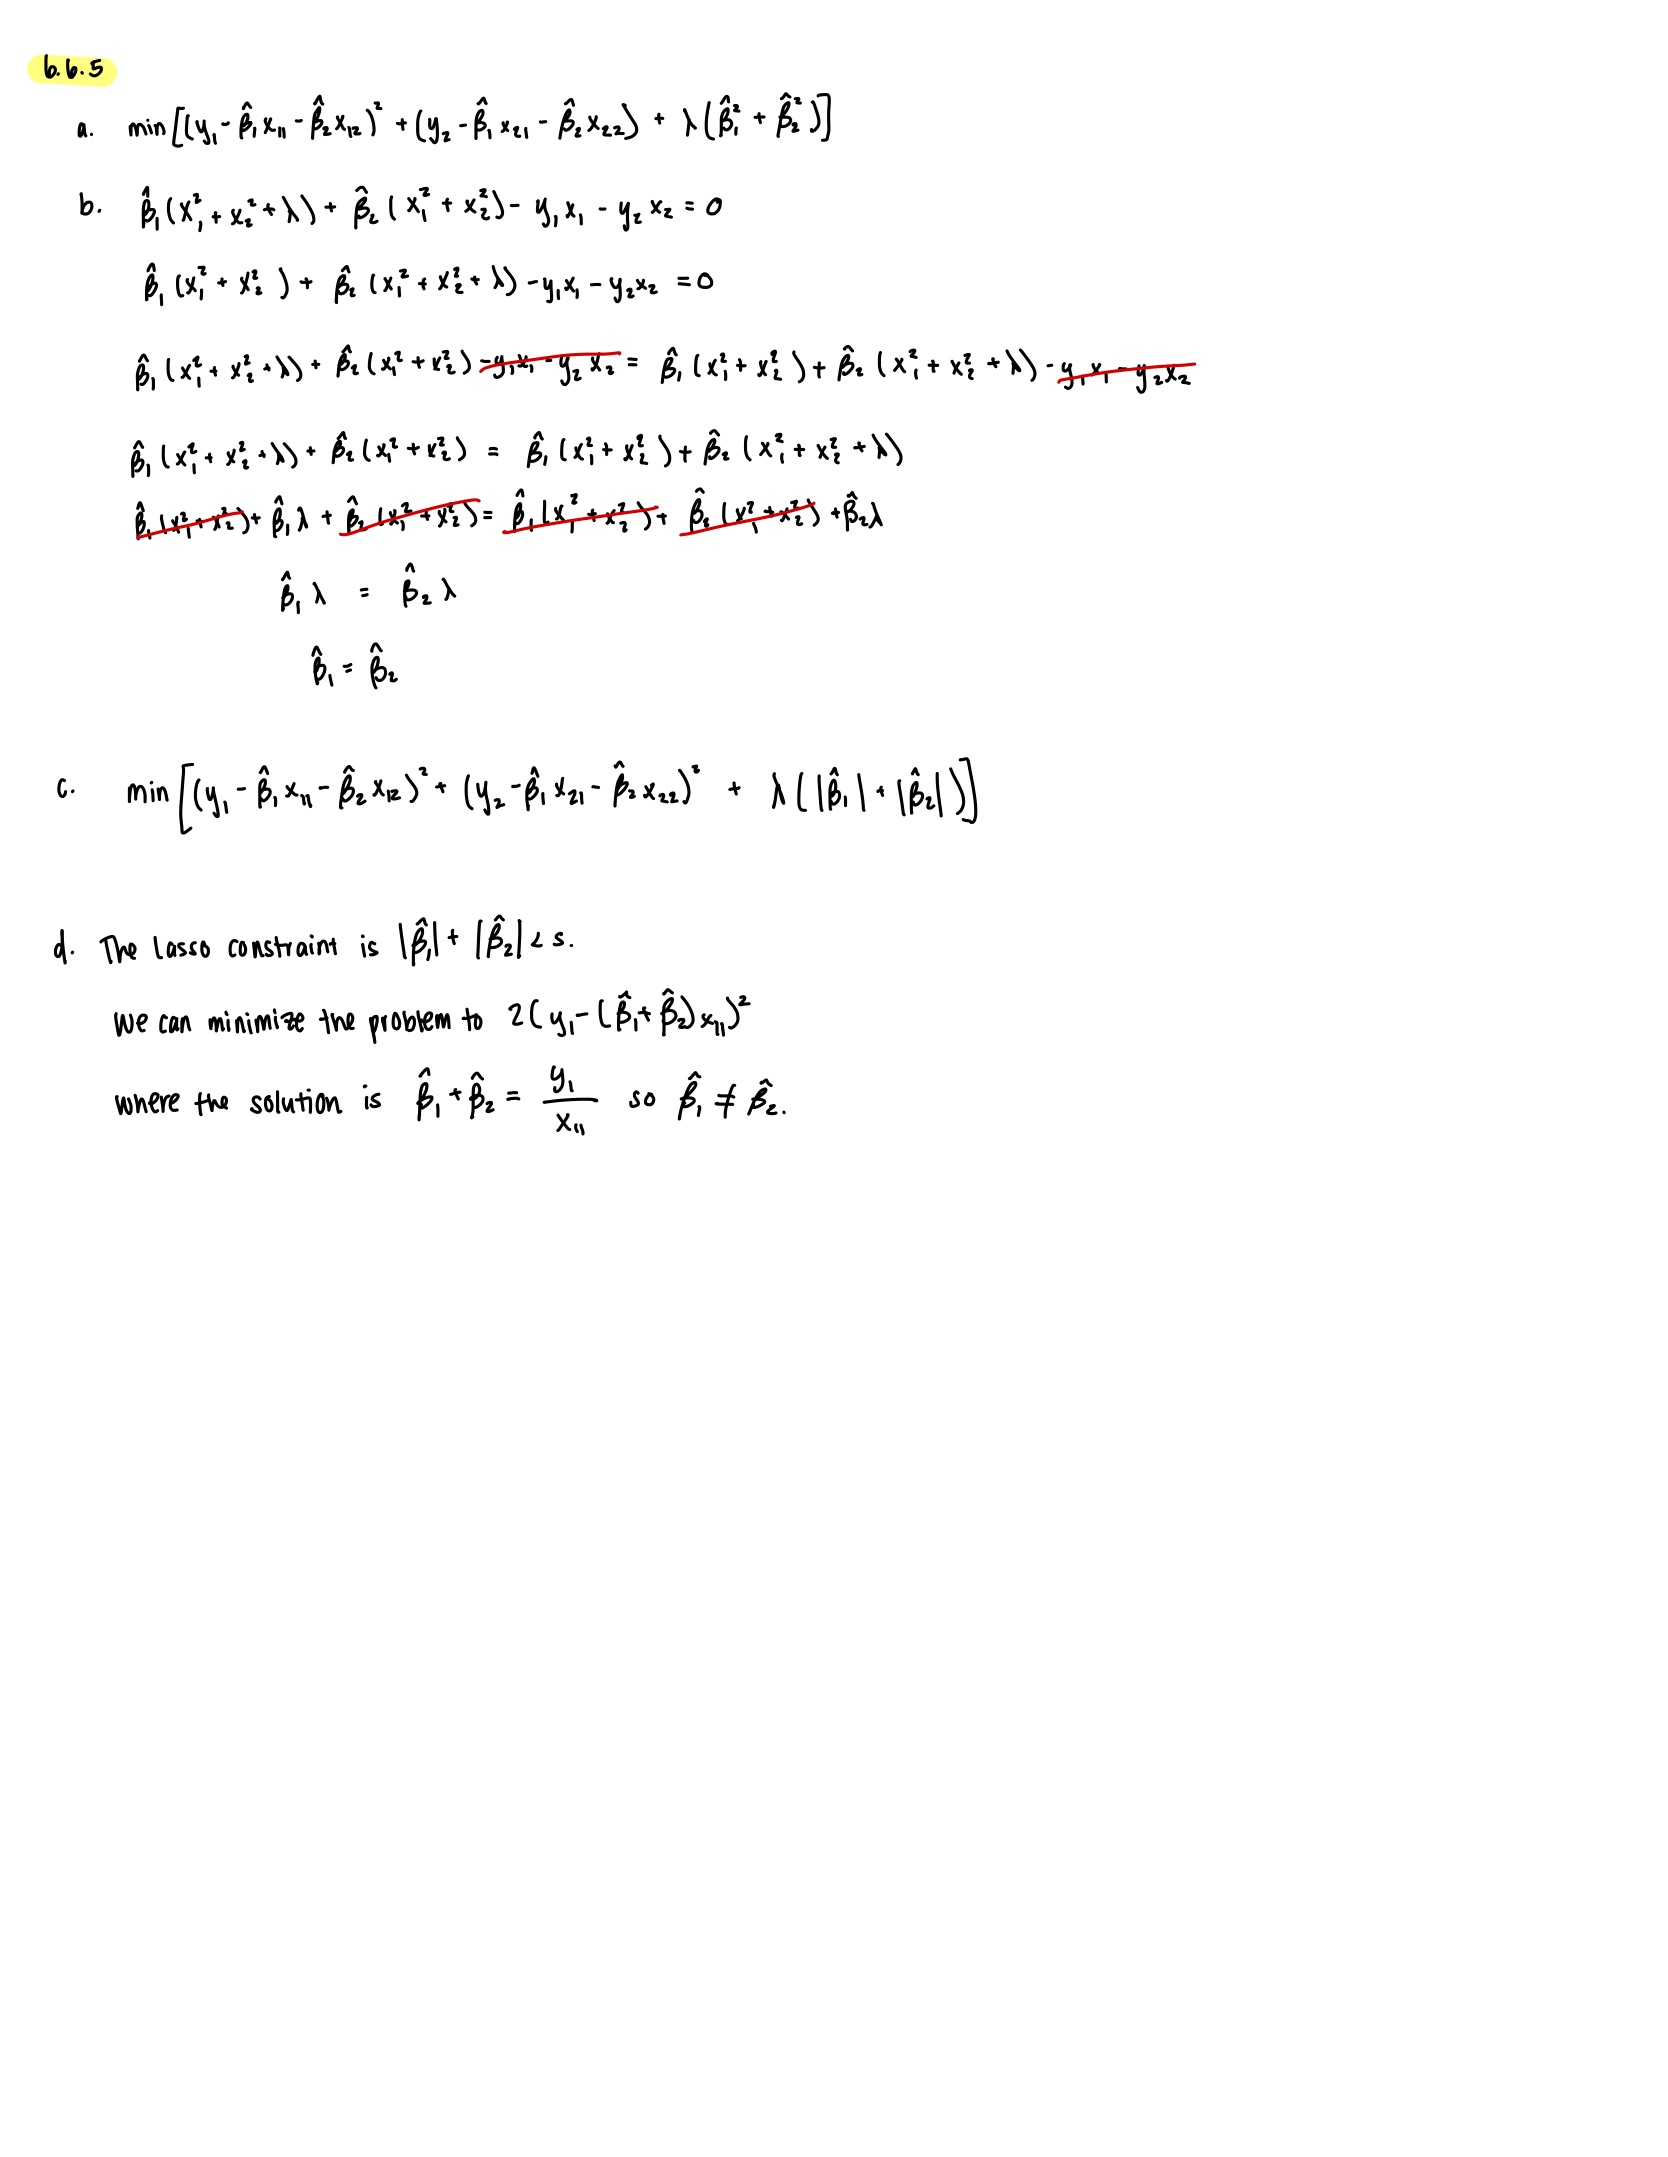 6.6.5
a. min[(y₁ - β̂₁x₁₁ - β̂₂x₁₂)² + (y₂ - β̂₁x₂₁ - β̂₂x₂₂) + λ(β̂₁² + β̂₂²)]
b. β̂₁(x₁² + x₂² + λ) + β̂₂(x₁² + x₂²) - y₁x₁ - y₂x₂ = 0
β̂₁(x₁² + x₂²) + β̂₂(x₁² + x₂² + λ) - y₁x₁ - y₂x₂ = 0
β̂₁(x₁² + x₂² + λ) + β̂₂(x₁² + x₂²) - y₁x₁ - y₂x₂ = β̂₁(x₁² + x₂²) + β̂₂(x₁² + x₂² + λ) - y₁x₁ - y₂x₂
β̂₁(x₁² + x₂² + λ) + β̂₂(x₁² + x₂²) = β̂₁(x₁² + x₂²) + β̂₂(x₁² + x₂² + λ)
β̂₁(x₁² + x₂²) + β̂₁λ + β̂₂(x₁² + x₂²) = β̂₁(x₁² + x₂²) + β̂₂(x₁² + x₂²) + β̂₂λ
β̂₁λ = β̂₂λ
β̂₁ = β̂₂
c. min[(y₁ - β̂₁x₁₁ - β̂₂x₁₂)² + (y₂ - β̂₁x₂₁ - β̂₂x₂₂)² + λ(|β̂₁| + |β̂₂|)]
d. The lasso constraint is |β̂₁| + |β̂₂| < s.
We can minimize the problem to 2(y₁ - (β̂₁ + β̂₂)x₁₁)²
where the solution is β̂₁ + β̂₂ = y₁/x₁₁ so β̂₁ ≠ β̂₂.